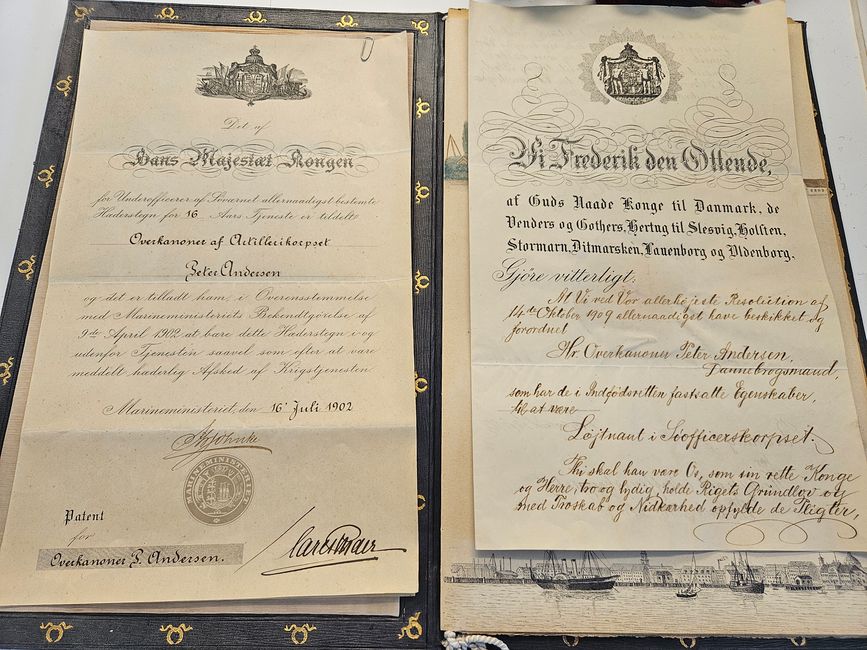 Det af
Hans Majestæt Kongen
for Underofficerer af Søværnet allernaadigst bestemte
Hæderstegn for 16 Aars Tjeneste er tildelt
Overkanoner af Artillerikorpset
Peter Andersen
og det er tilladt ham, i Overensstemmelse
med Marineministeriets Bekendtgørelse af
9de April 1902 at bære dette Hæderstegn i og
udenfor Tjenesten saavel som efter at være
meddelt hæderlig Afsked af Krigstjenesten
Marineministeriet, den 16' Juli 1902
MARINEMINISTERIET
Patent
for
Overkanoner P. Andersen.
Vi Frederik den Ottende,
af Guds Naade Konge til Danmark, de
Venders og Gothers, Hertug til Slesvig, Holsten,
Stormarn, Ditmarsken, Lauenborg og Oldenborg,
Gjöre vitterligt:
At Vi ved Vor allerhøjeste Resolution af
14de Oktober 1909 allernaadigst have beskikket og
forordnet
Hr. Overkanoner Peter Andersen,
Dannebrogsmand,
som har de i Indfødsretten fastsatte Egenskaber,
til at være
Løjtnant i Søofficerskorpset.
Thi skal han være Os, som sin rette Konge
og Herre, tro og lydig, holde Rigets Grundlov og
med Troskab og Nidkærhed opfylde de Pligter,